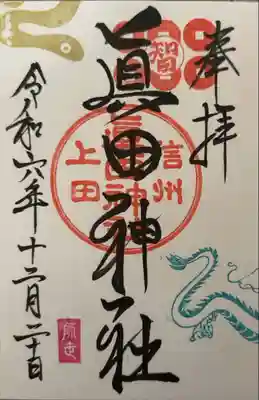 奉拝
智
眞田神社
信州
上田
眞田神社
令和六年十二月二十日